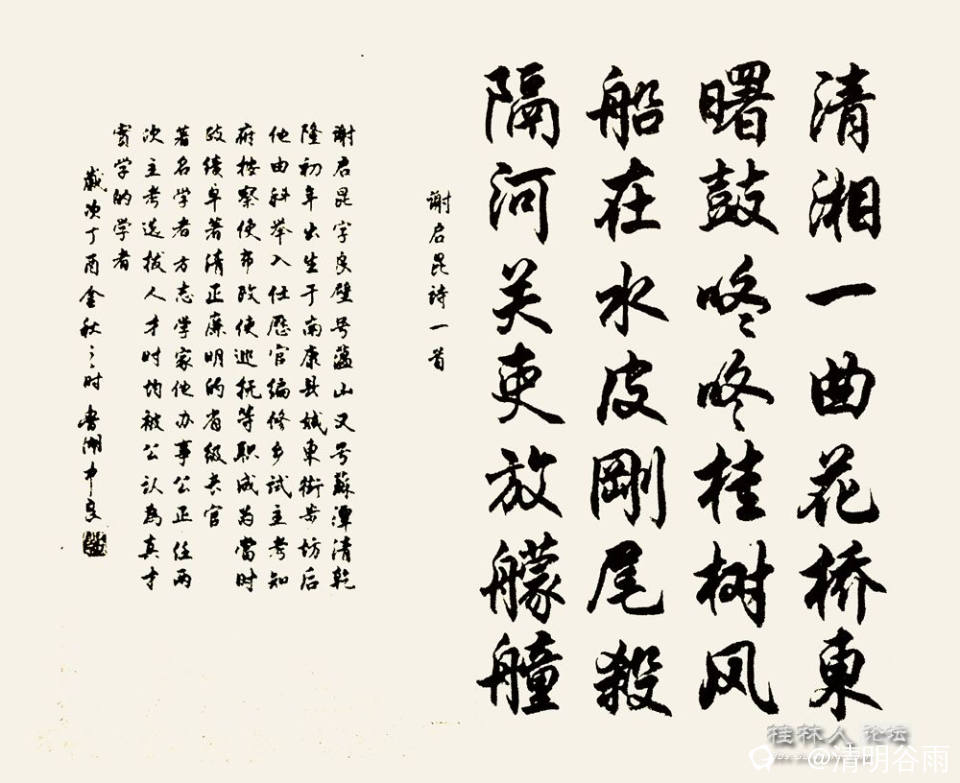 清湘一曲花桥東
曙鼓咚咚桂树风
船在水皮剛尾殺
隔河关吏放艨艟
谢启昆诗一首
谢启昆字良壁号蕴山又号蘇潭清乾
隆初年出生于南康县城東街步坊后
他由科举入仕歷官编修乡试主考知
府按察使布政使巡抚等职成为當时
政绩卓著清正廉明的省级长官
著名学者方志学家他办事公正任两
次主考选拔人才时均被公认為真才
实学的学者
歲次丁酉金秋之时
桂林人论坛
@清明谷雨